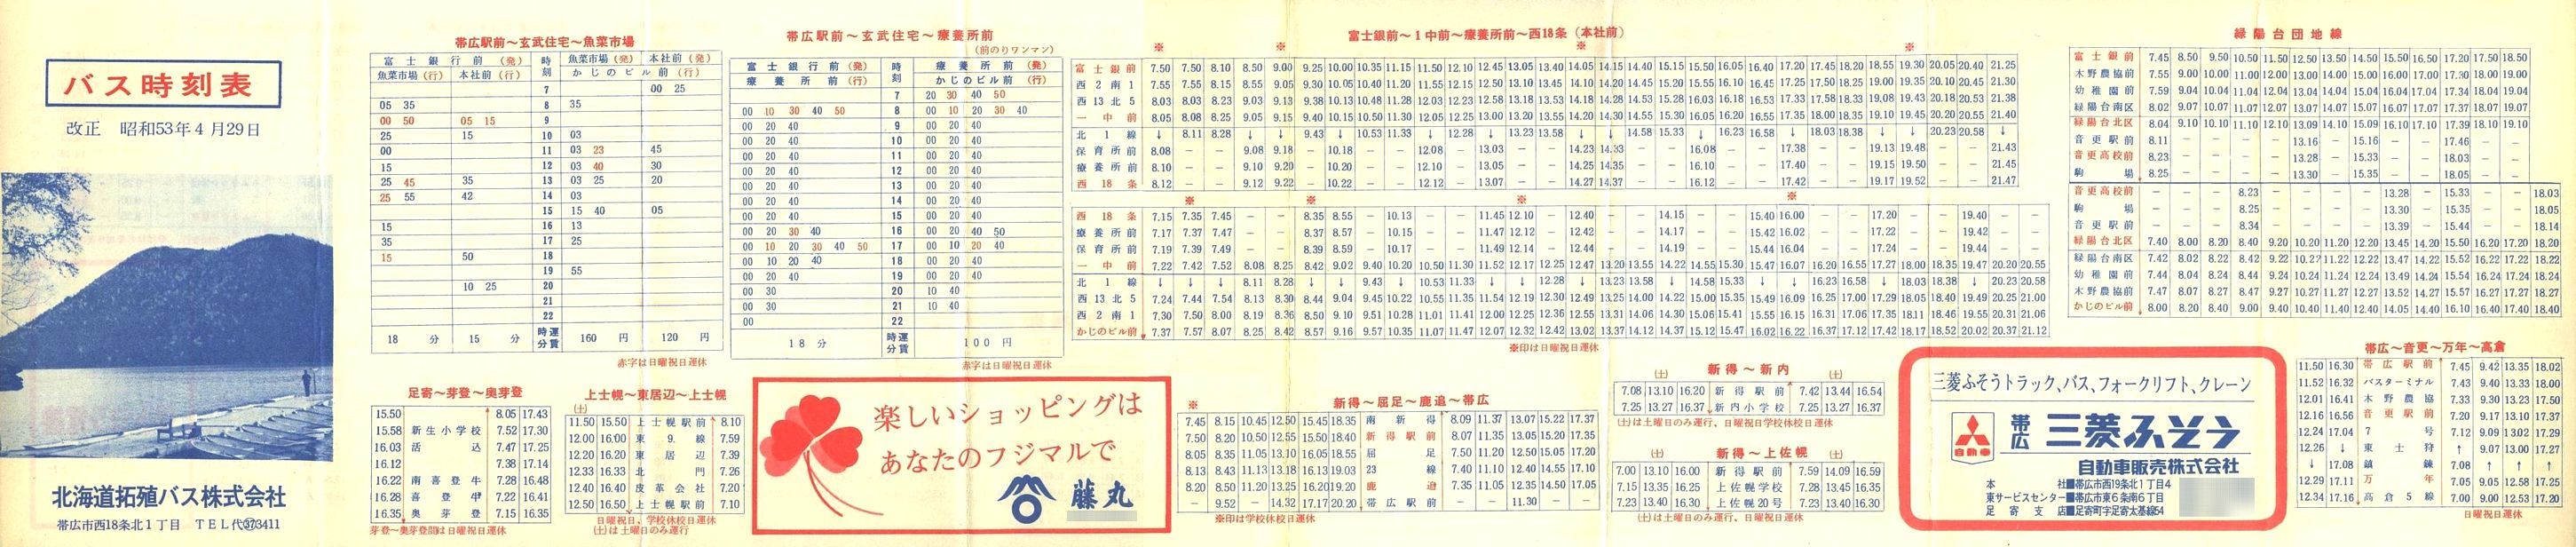 バス時刻表
改正 昭和53年4月29日
北海道拓殖バス株式会社
帯広市西18条北1丁目 TEL代㊲3411
帯広駅前～玄武住宅～魚菜市場
富士銀行前(発) 時刻 魚菜市場(発) 本社前(発)
魚菜市場(行) 本社前(行) かじのビル前(行)
7 00 25
05 35 8 35
00 50 05 15 9
25 15 10 03
00 11 03 23 45
15 12 03 40 30
25 45 35 13 03 25 20
25 55 42 14 03
15 15 40 05
15 16 13
35 17 25
15 50 18
19 55
10 25 20
21
22
18分 15分 時運分賃 160円 120円
赤字は日曜祝日運休
帯広駅前～玄武住宅～療養所前
(前のりワンマン)
富士銀行前(発) 時刻 療養所前(発)
療養所前(行) かじのビル前(行)
7 20 30 40 50
00 10 30 40 50 8 00 10 20 30 40
00 20 40 9 00 20 40
00 20 40 10 00 20 40
00 20 40 11 00 20 40
00 20 40 12 00 20 40
00 20 40 13 00 20 40
00 20 40 14 00 20 40
00 20 40 15 00 20 40
00 20 30 40 16 00 20 40 50
00 10 20 30 40 50 17 00 10 20 40
00 10 20 40 18 00 20 40
00 20 40 19 00 20 40
00 30 20 10 40
00 30 21 10 40
00 22
18分 時運分賃 100円
赤字は日曜祝日運休
富士銀前～1中前～療養所前～西18条(本社前)
※ ※ ※ ※
富士銀前 7.50 7.50 8.10 8.50 9.00 9.25 10.00 10.35 11.15 11.50 12.10 12.45 13.05 13.40 14.05 14.15 14.40 15.15 15.50 16.05 16.40 17.20 17.45 18.20 18.55 19.30 20.05 20.40 21.25
西2南1 7.55 7.55 8.15 8.55 9.05 9.30 10.05 10.40 11.20 11.55 12.15 12.50 13.10 13.45 14.10 14.20 14.45 15.20 15.55 16.10 16.45 17.25 17.50 18.25 19.00 19.35 20.10 20.45 21.30
西13北5 8.03 8.03 8.23 9.03 9.13 9.38 10.13 10.48 11.28 12.03 12.23 12.58 13.18 13.53 14.18 14.28 14.53 15.28 16.03 16.18 16.53 17.33 17.58 18.33 19.08 19.43 20.18 20.53 21.38
一中前 8.05 8.08 8.25 9.05 9.15 9.40 10.15 10.50 11.30 12.05 12.25 13.00 13.20 13.55 14.20 14.30 14.55 15.30 16.05 16.20 16.55 17.35 18.00 18.35 19.10 19.45 20.20 20.55 21.40
北1線 ↓ 8.11 8.28 ↓ ↓ 9.43 ↓ 10.53 11.33 ↓ 12.28 ↓ 13.23 13.58 ↓ ↓ 14.58 15.33 ↓ 16.23 16.58 ↓ 18.03 18.38 ↓ ↓ 20.23 20.58 ↓
保育所前 8.08 － － 9.08 9.18 － 10.18 － － 12.08 － 13.03 － － 14.23 14.33 － － 16.08 － － 17.38 － － 19.13 19.48 － － 21.43
療養所前 8.10 － － 9.10 9.20 － 10.20 － － 12.10 － 13.05 － － 14.25 14.35 － － 16.10 － － 17.40 － － 19.15 19.50 － － 21.45
西18条 8.12 － － 9.12 9.22 － 10.22 － － 12.12 － 13.07 － － 14.27 14.37 － － 16.12 － － 17.42 － － 19.17 19.52 － － 21.47
※ ※ ※ ※
西18条 7.15 7.35 7.45 － － 8.35 8.55 － 10.13 － － 11.45 12.10 － 12.40 － － 14.15 － － 15.40 16.00 － － 17.20 － － 19.40 － －
療養所前 7.17 7.37 7.47 － － 8.37 8.57 － 10.15 － － 11.47 12.12 － 12.42 － － 14.17 － － 15.42 16.02 － － 17.22 － － 19.42 － －
保育所前 7.19 7.39 7.49 － － 8.39 8.59 － 10.17 － － 11.49 12.14 － 12.44 － － 14.19 － － 15.44 16.04 － － 17.24 － － 19.44 － －
一中前 7.22 7.42 7.52 8.08 8.25 8.42 9.02 9.40 10.20 10.50 11.30 11.52 12.17 12.25 12.47 13.20 13.55 14.22 14.55 15.30 15.47 16.07 16.20 16.55 17.27 18.00 18.35 19.47 20.20 20.55
北1線 ↓ ↓ ↓ 8.11 8.28 ↓ ↓ 9.43 ↓ 10.53 11.33 ↓ ↓ 12.28 ↓ 13.23 13.58 ↓ 14.58 15.33 ↓ ↓ 16.23 16.58 ↓ 18.03 18.38 ↓ 20.23 20.58
西13北5 7.24 7.44 7.54 8.13 8.30 8.44 9.04 9.45 10.22 10.55 11.35 11.54 12.19 12.30 12.49 13.25 14.00 14.22 15.00 15.35 15.49 16.09 16.25 17.00 17.29 18.05 18.40 19.49 20.25 21.00
西2南1 7.30 7.50 8.00 8.19 8.36 8.50 9.10 9.51 10.28 11.01 11.41 12.00 12.25 12.36 12.55 13.31 14.06 14.30 15.06 15.41 15.55 16.15 16.31 17.06 17.35 18.11 18.46 19.55 20.31 21.06
かじのビル前 7.37 7.57 8.07 8.25 8.42 8.57 9.16 9.57 10.35 11.07 11.47 12.07 12.32 12.42 13.02 13.37 14.12 14.37 15.12 15.47 16.02 16.22 16.37 17.12 17.42 18.17 18.52 20.02 20.37 21.12
※印は日曜祝日運休
緑陽台団地線
富士銀前 7.45 8.50 9.50 10.50 11.50 12.50 13.50 14.50 15.50 16.50 17.20 17.50 18.50
木野農協前 7.55 9.00 10.00 11.00 12.00 13.00 14.00 15.00 16.00 17.00 17.30 18.00 19.00
幼稚園前 7.59 9.04 10.04 11.04 12.04 13.04 14.04 15.04 16.04 17.04 17.34 18.04 19.04
緑陽台南区 8.02 9.07 10.07 11.07 12.07 13.07 14.07 15.07 16.07 17.07 17.37 18.07 19.07
緑陽台北区 8.04 9.10 10.10 11.10 12.10 13.09 14.10 15.09 16.10 17.10 17.39 18.10 19.10
音更駅前 8.11 － － － － 13.16 － 15.16 － － 17.46 － －
音更高校前 8.23 － － － － 13.28 － 15.33 － － 18.03 － －
駒場 8.25 － － － － 13.30 － 15.35 － － 18.05 － －
音更高校前 － － － 8.23 － － － － 13.28 － 15.33 － － 18.03
駒場 － － － 8.25 － － － － 13.30 － 15.35 － － 18.05
音更駅前 － － － 8.34 － － － － 13.39 － 15.44 － － 18.14
緑陽台北区 7.40 8.00 8.20 8.40 9.20 10.20 11.20 12.20 13.45 14.20 15.50 16.20 17.20 18.20
緑陽台南区 7.42 8.02 8.22 8.42 9.22 10.22 11.22 12.22 13.47 14.22 15.52 16.22 17.22 18.22
幼稚園前 7.44 8.04 8.24 8.44 9.24 10.24 11.24 12.24 13.49 14.24 15.54 16.24 17.24 18.24
木野農協前 7.47 8.07 8.27 8.47 9.27 10.27 11.27 12.27 13.52 14.27 15.57 16.27 17.27 18.27
かじのビル前 8.00 8.20 8.40 9.00 9.40 10.40 11.40 12.40 14.05 14.40 16.10 16.40 17.40 18.40
足寄～芽登～奥芽登
15.50 8.05 17.43
15.58 新生小学校 7.52 17.30
16.03 活込 7.47 17.25
16.12 7.38 17.14
16.22 南喜登牛 7.28 16.48
16.28 喜登牛 7.22 16.41
16.35 奥芽登 7.15 16.35
芽登～奥芽登間は日曜祝日運休
上士幌～東居辺～上士幌
(土)
11.50 15.50 上士幌駅前 8.10
12.00 16.00 東9線 7.59
12.20 16.20 東居辺 7.39
12.33 16.33 北門 7.26
12.40 16.40 皮革会社 7.20
12.50 16.50 上士幌駅前 7.10
日曜祝日、学校休校日運休
(土)は土曜日のみ運行
楽しいショッピングは
あなたのフジマルで
藤丸
新得～屈足～鹿追～帯広
※
7.45 8.15 10.45 12.50 15.45 18.35 南新得 8.09 11.37 13.07 15.22 17.37
7.50 8.20 10.50 12.55 15.50 18.40 新得駅前 8.07 11.35 13.05 15.20 17.35
8.05 8.35 11.05 13.10 16.05 18.55 屈足 7.50 11.20 12.50 15.05 17.20
8.13 8.43 11.13 13.18 16.13 19.03 23線 7.40 11.10 12.40 14.55 17.10
8.20 8.50 11.20 13.25 16.20 19.20 鹿追 7.35 11.05 12.35 14.50 17.05
－ 9.52 － 14.32 17.17 20.20 帯広駅前 － － 11.30 － －
※印は学校休校日運休
新得～新内
(土) (土)
7.08 13.10 16.20 新得駅前 7.42 13.44 16.54
7.25 13.27 16.37 新内小学校 7.25 13.27 16.37
(土)は土曜日のみ運行、日曜祝日学校休校日運休
新得～上佐幌
(土) (土)
7.00 13.10 16.00 新得駅前 7.59 14.09 16.59
7.15 13.25 16.15 上佐幌学校 7.28 13.45 16.35
7.23 13.40 16.30 上佐幌20号 7.23 13.40 16.30
(土)は土曜日のみ運行、日曜祝日運休
三菱ふそうトラック、バス、フォークリフト、クレーン
三菱自動車
帯広 三菱ふそう
自動車販売株式会社
本社■帯広市西19条北1丁目4
東サービスセンター■帯広市東6条南6丁目
足寄支店■足寄町字足寄太基線54
帯広～音更～万年～高倉
11.50 16.30 帯広駅前 7.45 9.42 13.35 18.02
11.52 16.32 バスターミナル 7.43 9.40 13.33 18.00
12.01 16.41 木野農協 7.33 9.30 13.23 17.50
12.16 16.56 音更駅前 7.20 9.17 13.10 17.37
12.24 17.04 7号 7.12 9.09 13.02 17.29
12.26 ↓ 東士狩 ↑ 9.07 13.00 17.27
↓ 17.08 鎮錬 7.08 ↑ ↑ ↑
12.29 17.11 万年 7.05 9.05 12.58 17.25
12.34 17.16 高倉5線 7.00 9.00 12.53 17.20
日曜祝日運休